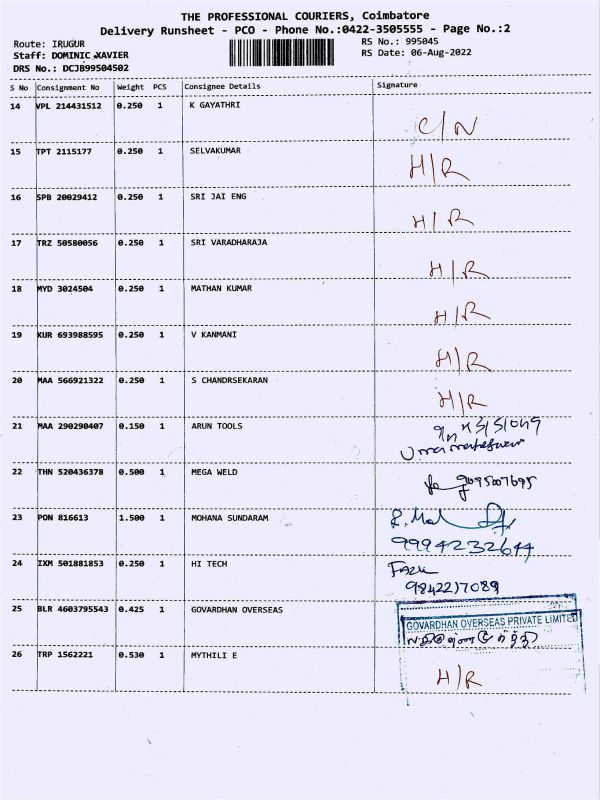 THE PROFESSIONAL COURIERS, Coimbatore
Delivery Runsheet - PCO - Phone No.:0422-3505555 - Page No.:2
Route: IRUGUR
RS No.: 995045
Staff: DOMINIC XAVIER
RS Date: 06-Aug-2022
DRS No.: DCJB99504502
S No Consignment No Weight PCS Consignee Details Signature
14 VPL 214431512 0.250 1 K GAYATHRI
C/N
15 TPT 2115177 0.250 1 SELVAKUMAR
H/R
16 SPB 20029412 0.250 1 SRI JAI ENG
H/R
17 TRZ 50580056 0.250 1 SRI VARADHARAJA
H/R
18 MYD 3024504 0.250 1 MATHAN KUMAR
H/R
19 KUR 693988595 0.250 1 V KANMANI
H/R
20 MAA 566921322 0.250 1 S CHANDRSEKARAN
H/R
21 MAA 290290407 0.150 1 ARUN TOOLS
22 THN 520436378 0.500 1 MEGA WELD
9095007695
23 PON 816613 1.500 1 MOHANA SUNDARAM
9994232644
24 IXM 501881853 0.250 1 HI TECH
9842217089
25 BLR 4603795543 0.425 1 GOVARDHAN OVERSEAS
GOVARDHAN OVERSEAS PRIVATE LIMITED
26 TRP 1562221 0.530 1 MYTHILI E
H/R